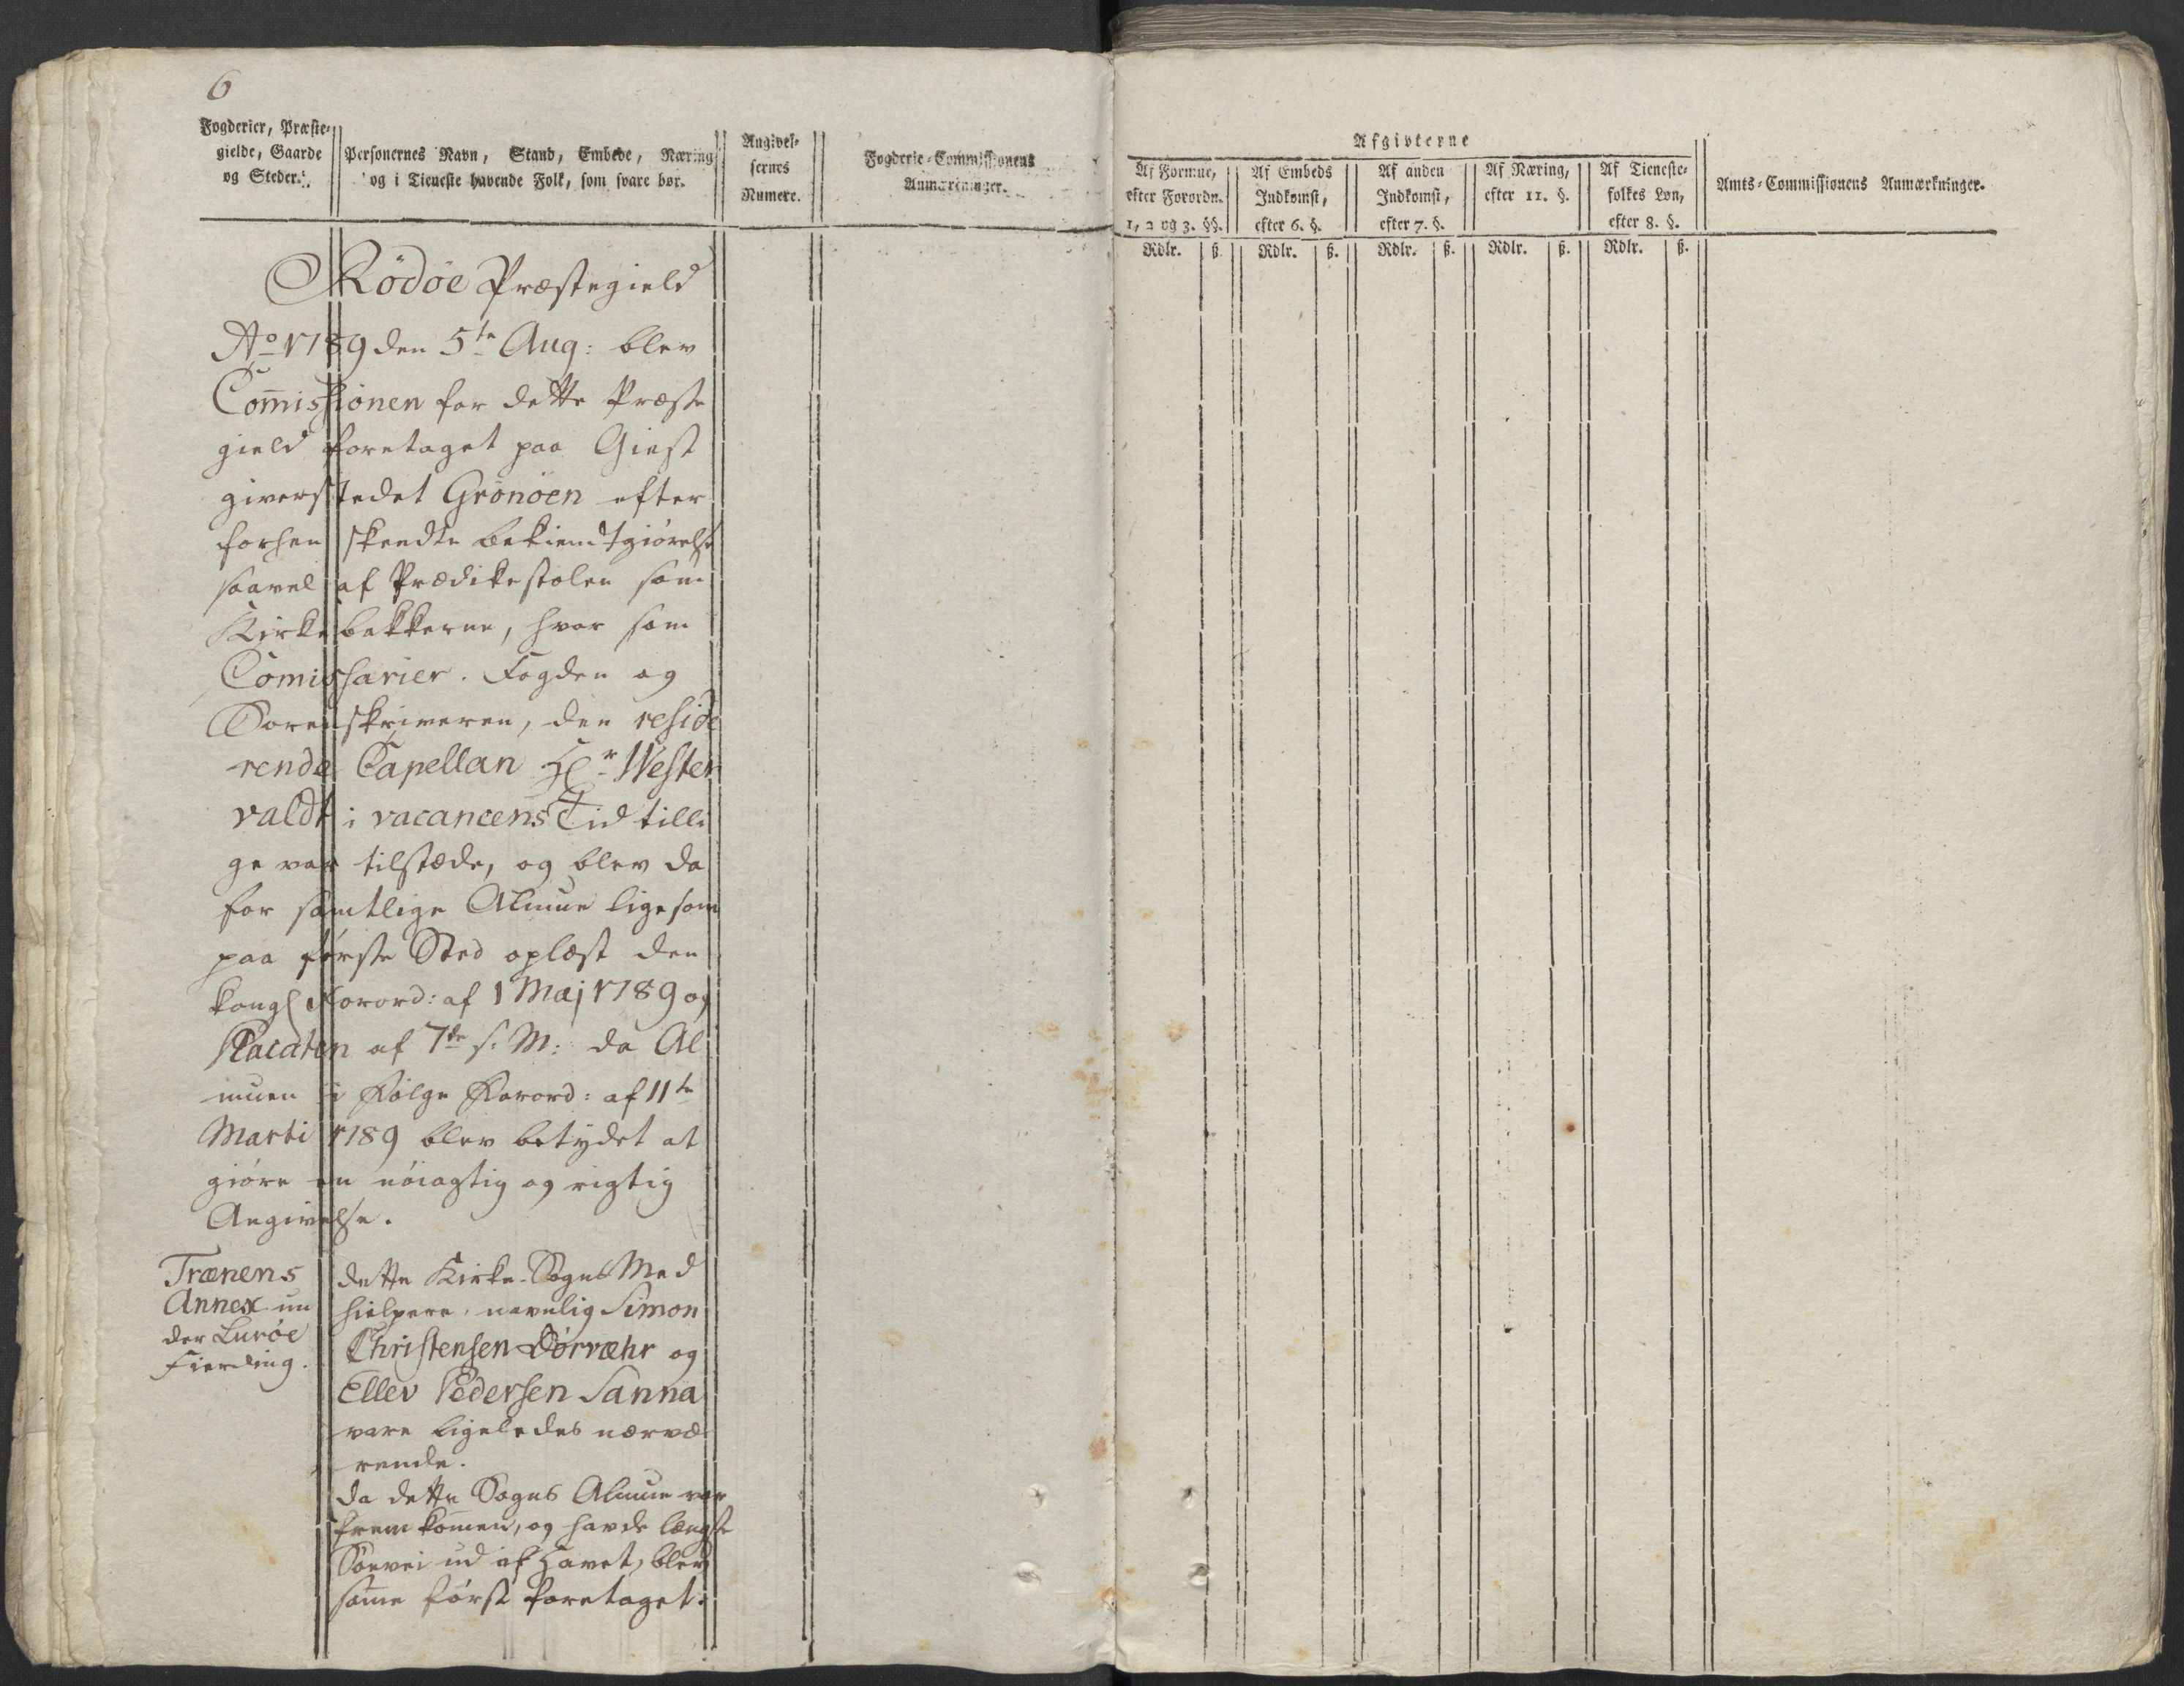 6
Fogderier, Præste-
gielde, Gaarde
og Steder.
Personernes Navn, Stand, Embede, Næring
og i Tieneste havende Folk, som svare bør.
Angivel-
sernes
Numere.
Fogderie-Commissionens
Anmærkninger.
Afgivterne
Af Formue,
efter Forordn.
1, 2 og 3. §§.
Af Embeds
Indkomst,
efter 6. §.
Af anden
Indkomst,
efter 7. §.
Af Næring,
efter 11. §.
Af Tieneste-
folkes Løn,
efter 8. §.
Amts-Commissionens Anmærkninger.
Rdlr. ß. Rdlr. ß. Rdlr. ß. Rdlr. ß. Rdlr. ß.
Rödöe Præstegield
Ao 1789 den 5te Aug: blev
Com̄issionen for dette Præste
gield foretaget paa Giest
giverstedet Grönöen efter
forhen skeedte bekiendtgiörelse
saavel af Prædikestolen som
Kirkebakkerne, hvor som
Comissarier. Fogden og
Sorenskriveren, den reside
rende Capellan Hr. Wester
valdt i vacancens Tid tilli
ge var tilstæde, og blev da
for samtlige Almue ligesom
paa förste Sted oplæst den
kongl Forord: af 1 Maj 1789 og
Placaten af 7de s. M: da Al
muen i Fölge Forord: af 11te
Marti 1789 blev betydet at
giöre en nöiagtig og rigtig
Angivelse.
Trænens
Annex un
der Luröe
Fierding.
dette Kirke-Sogns Med
hielpere, navnlig Simon
Christensen Dörvæhr og
Ellev Pedersen Sanna
vare ligeledes nærvæ
rende.
da dette Sogns Almue var
fremkom̄en, og havde længste
Söevei ud af Havet, blev
sam̄e först foretaget.